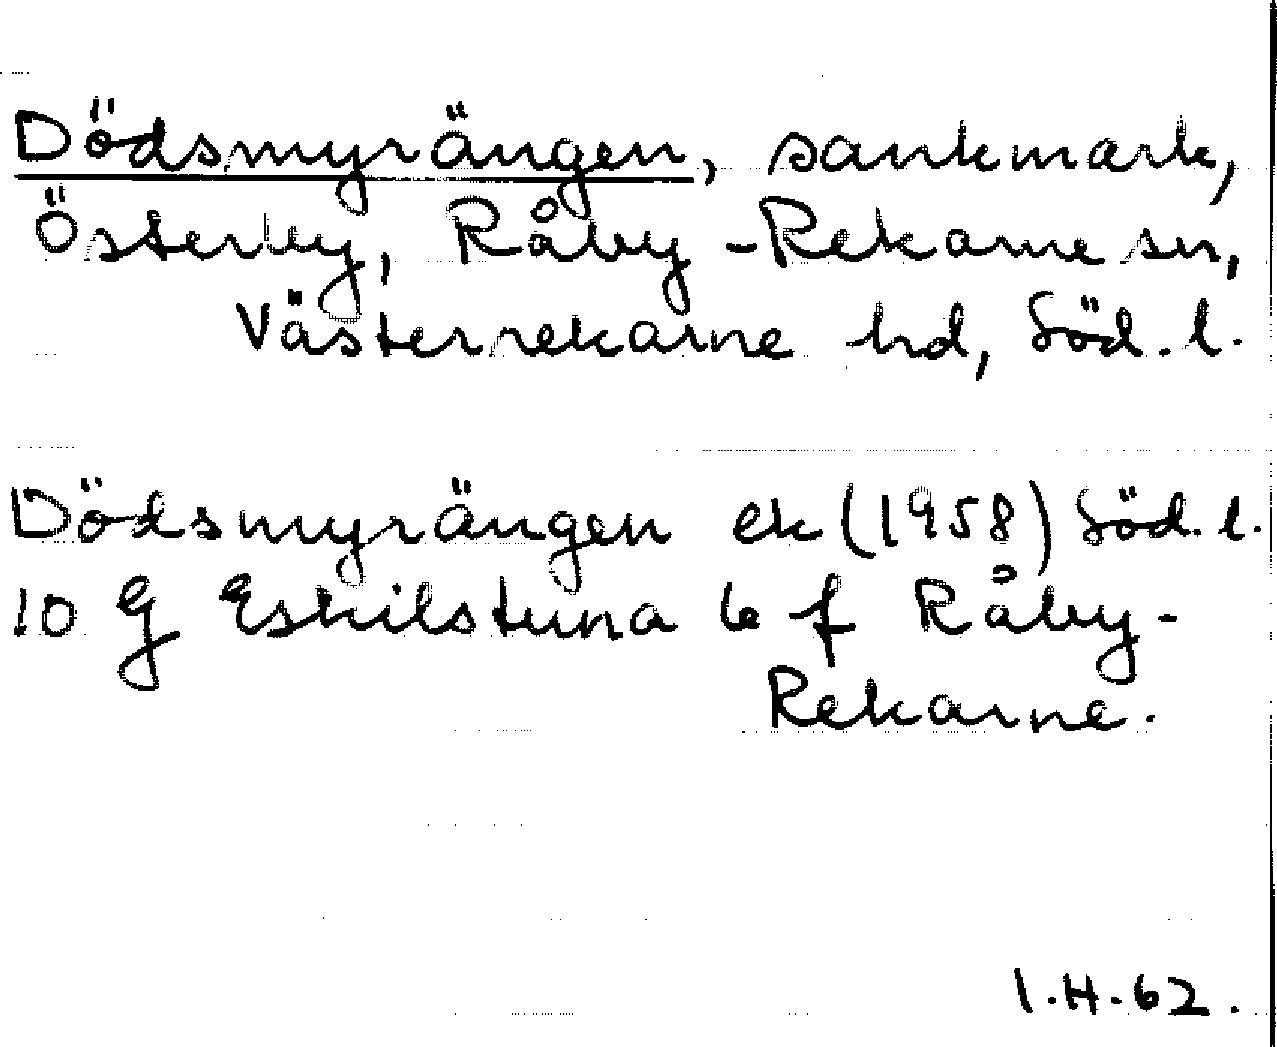 Dödsmyrängen, sankmark,
Österby, Råby-Rekarne sn,
Västerrekarne hd, Söd. l.
Dödsmyrängen ek (1958) Söd. l.
10 G Eskilstuna 6 f Råby-
Rekarne.
I.H. 62.